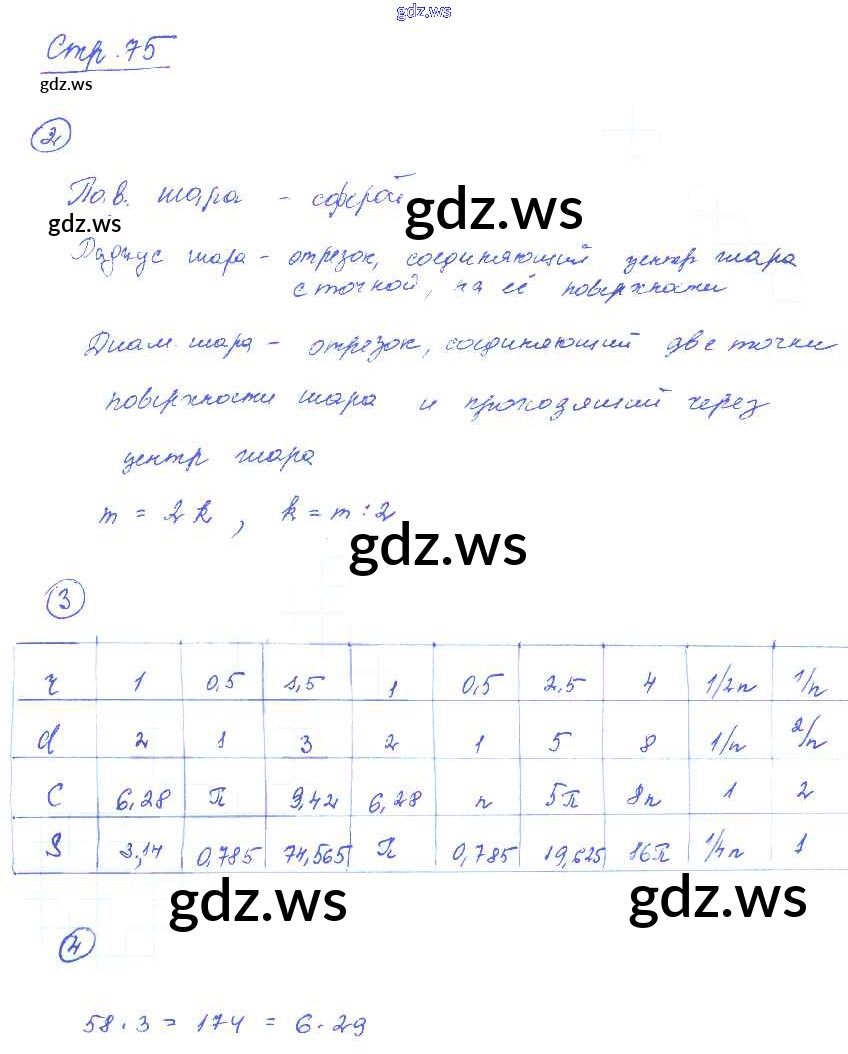 gdz.ws
Стр. 75
gdz.ws
2
Пов. шара - сферой
gdz.ws
gdz.ws
Радиус шара - отрезок, соединяющий центр шара
с точкой, на её поверхности
Диам. шара - отрезок, соединяющий две точки
поверхности шара и проходящий через
центр шара
m = 2k, k = m : 2
gdz.ws
3
r 1 0,5 1,5 1 0,5 2,5 4 1/2π 1/π
d 2 1 3 2 1 5 8 1/π 2/π
C 6,28 π 9,42 6,28 π 5π 8π 1 2
S 3,14 0,785 74,565 π 0,785 19,625 16π 1/4π 1
gdz.ws
gdz.ws
4
58 · 3 = 174 = 6 · 29